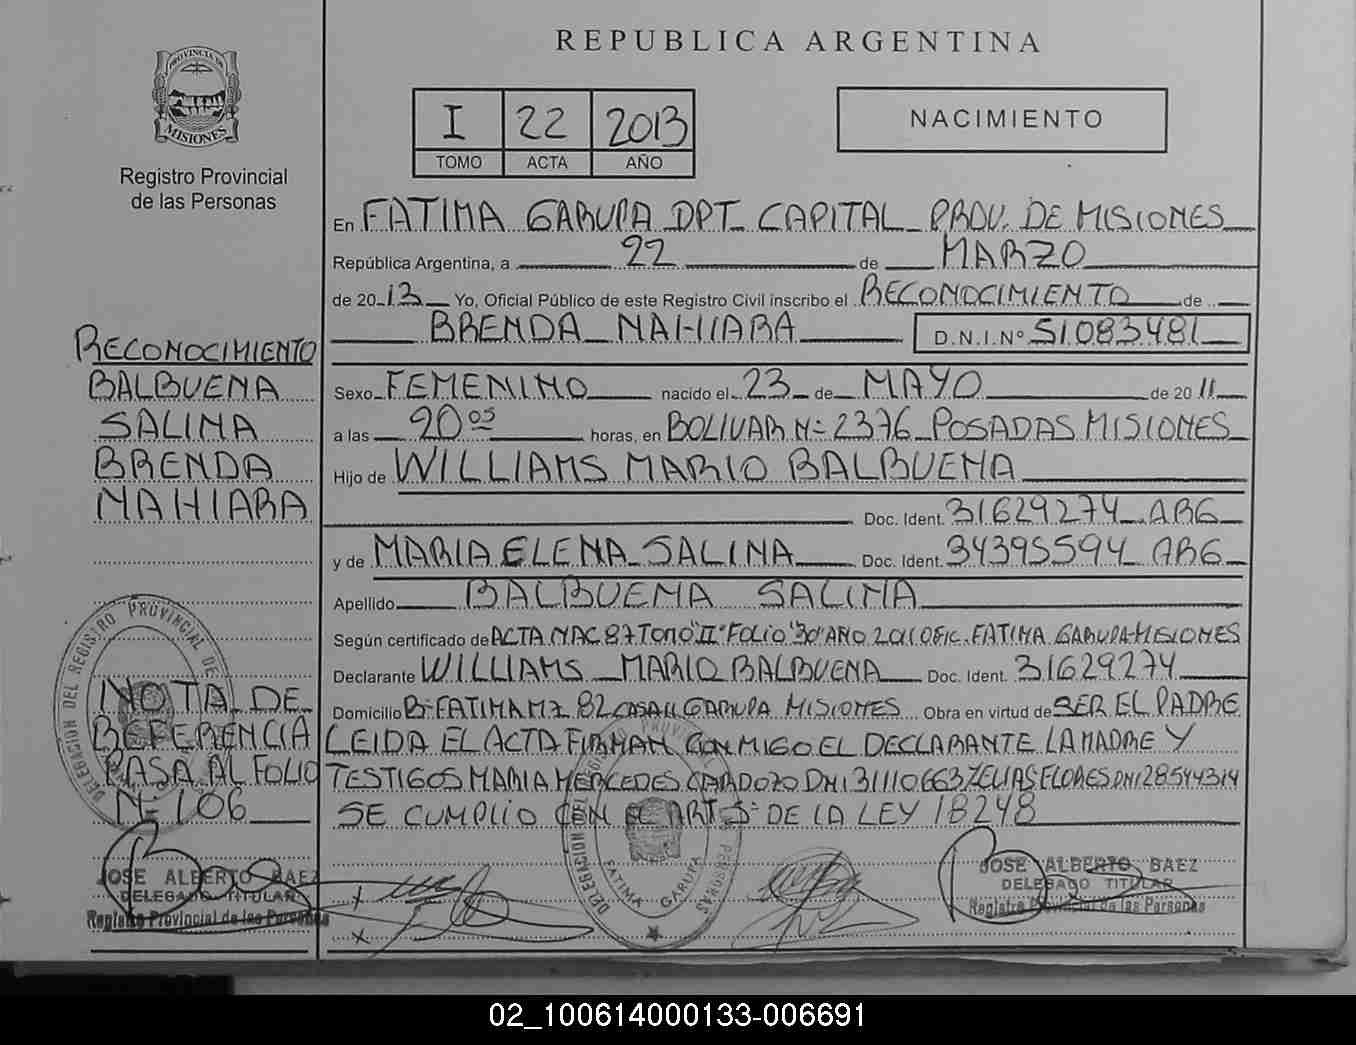 REPUBLICA ARGENTINA
PROVINCIA DE
MISIONES
Registro Provincial
de las Personas
I 22 2013
TOMO ACTA AÑO
NACIMIENTO
En FATIMA GARUPA DPT. CAPITAL PROV. DE MISIONES
República Argentina, a 22 de MARZO
de 2013 Yo, Oficial Público de este Registro Civil inscribo el RECONOCIMIENTO de
BRENDA NAHIARA D.N.I.Nº 51.083.481
Sexo FEMENINO nacido el 23 de MAYO de 2011
a las 20 05 horas, en BOLIVAR Nº 2376 POSADAS MISIONES
Hijo de WILLIAMS MARIO BALBUENA
Doc. Ident. 31629274 ARG
y de MARIA ELENA SALINA Doc. Ident. 34395594 ARG
Apellido BALBUENA SALINA
Según certificado de ACTA NAC 87 TOMO "II" FOLIO "30" AÑO 2011 OFIC. FATIMA GARUPA-MISIONES
Declarante WILLIAMS MARIO BALBUENA Doc. Ident. 31629274
Domicilio Bº FATIMA MZ 82 CASA 11 GARUPA MISIONES Obra en virtud de SER EL PADRE
LEIDA EL ACTA FIRMAN CONMIGO EL DECLARANTE LA MADRE Y
TESTIGOS MARIA MERCEDES CARDOZO DNI 31110663 ELIAS FLORES DNI 28544314
SE CUMPLIO CON EL ART 5º DE LA LEY 18248
RECONOCIMIENTO
BALBUENA
SALINA
BRENDA
NAHIARA
NOTA DE
REFERENCIA
PASA AL FOLIO
Nº 106
DELEGACION DEL REGISTRO PROVINCIAL DE
JOSE ALBERTO BAEZ
DELEGADO TITULAR
Registro Provincial de las Personas
DELEGACION DEL PROVINCIAL PERSONAS
FATIMA GARUPA
JOSE ALBERTO BAEZ
DELEGADO TITULAR
Registro Provincial de las Personas
02_100614000133-006691